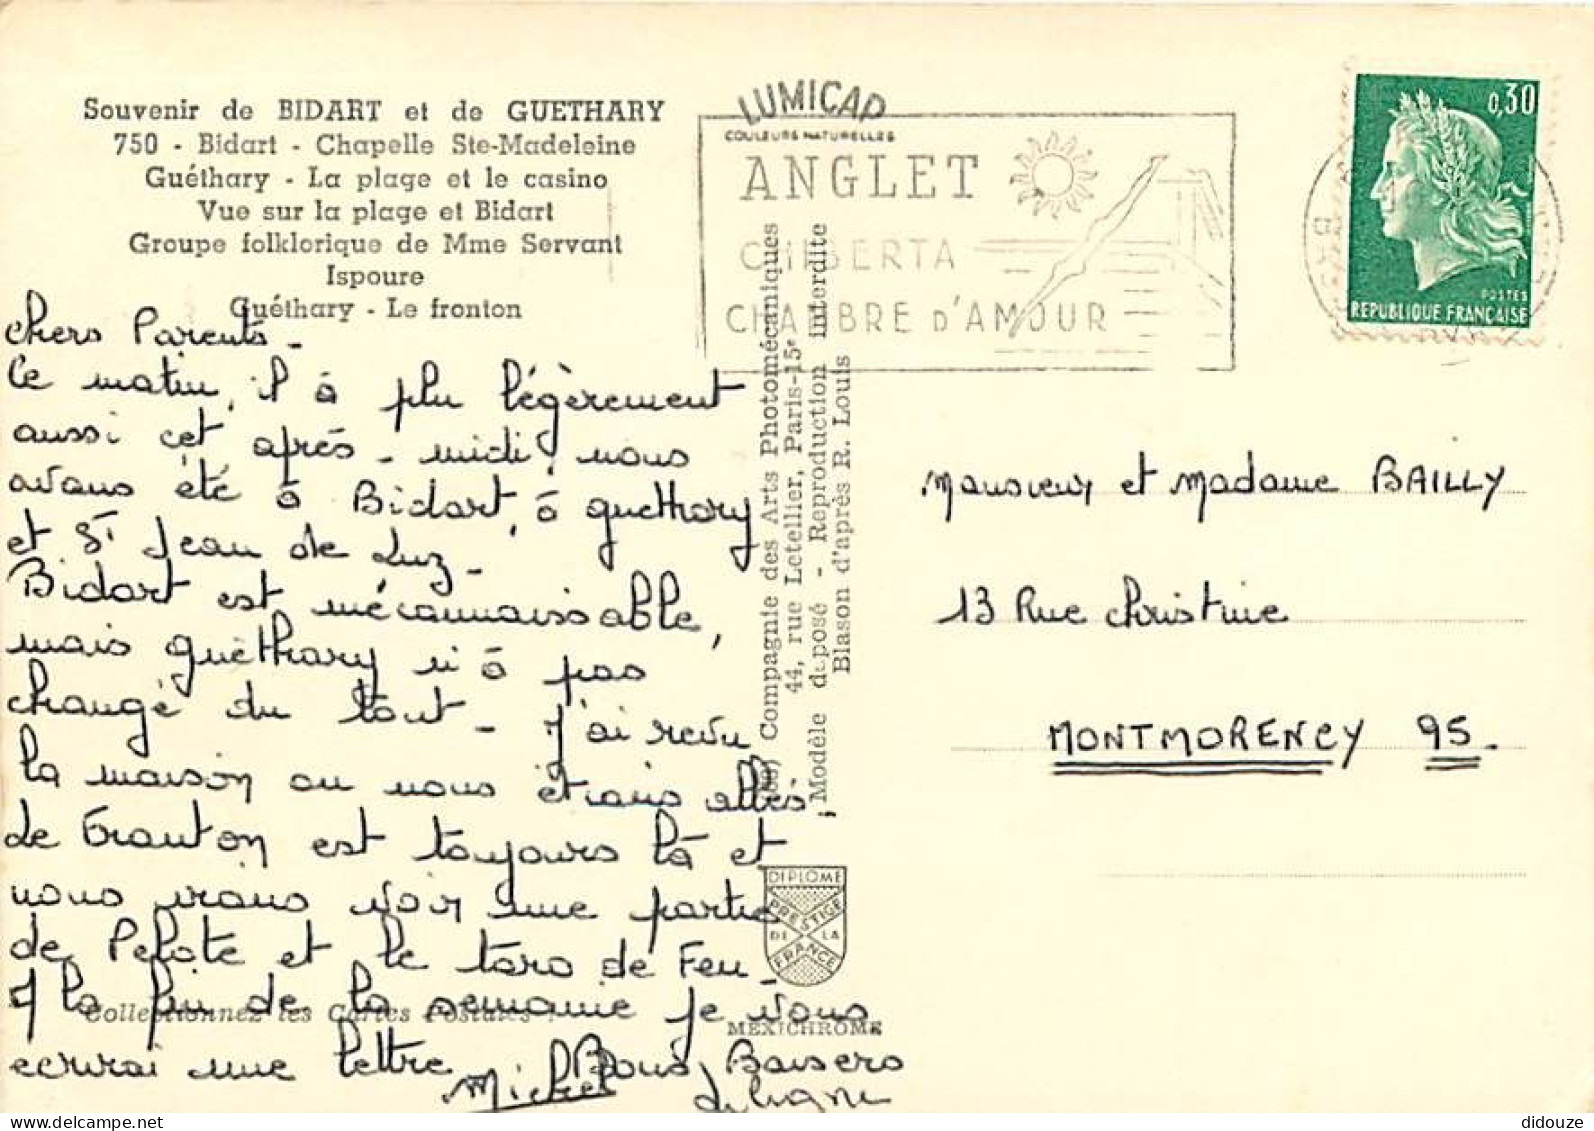 Souvenir de BIDART et de GUETHARY
750 - Bidart - Chapelle Ste-Madeleine
Guéthary - La plage et le casino
Vue sur la plage et Bidart
Groupe folklorique de Mme Servant
Ispoure
Guéthary - Le fronton
LUMICAP
COULEURS NATURELLES
ANGLET
CHIBERTA
CHAMBRE D'AMOUR
0,30
POSTES
REPUBLIQUE FRANÇAISE
chers Parents -
Ce matin, il à plu légèrement
aussi cet après-midi, nous
avons été à Bidart, à guethary
et St Jean de Luz -
Bidart est méconnaissable,
mais guéthary n'à pas
changé du tout - J'ai revu
la maison ou nous étions allés,
Le Fronton est toujours là et
nous irons voir une partie
de Pelote et le toro de Feu -
A la fin de la semaine je vous
ecrirai une lettre Bons Baisers
Michel
Compagnie des Arts Photomécaniques
44, rue Letellier, Paris-15e
Modèle déposé - Reproduction interdite
Blason d'après R. Louis
DIPLOME
PRESTIGE
DE LA
FRANCE
Collectionnez les Cartes Postales !
MEXICHROME
Monsieur et Madame BAILLY
13 Rue Christine
MONTMORENCY 95.
didouze